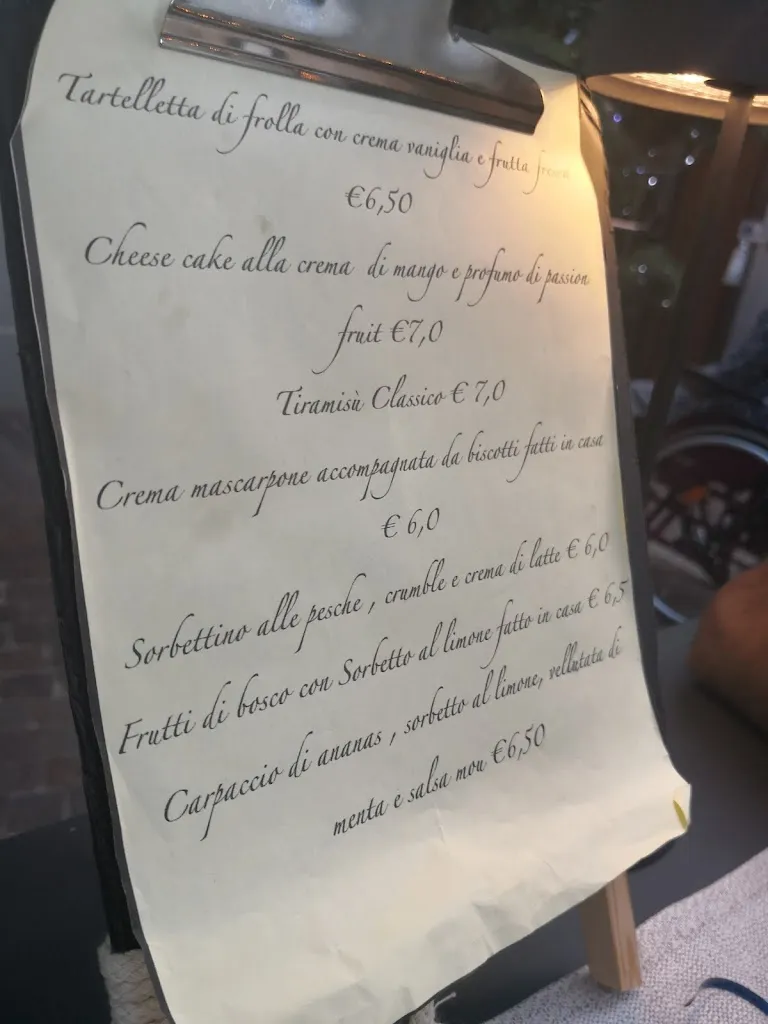 Tartelletta di frolla con crema vaniglia e frutta fresca
€6,50
Cheese cake alla crema di mango e profumo di passion
fruit €7,0
Tiramisù Classico € 7,0
Crema mascarpone accompagnata da biscotti fatti in casa
€ 6,0
Sorbettino alle pesche , crumble e crema di latte € 6,0
Frutti di bosco con Sorbetto al limone fatto in casa € 6,5
Carpaccio di ananas , sorbetto al limone, vellutata di
menta e salsa mou €6,50